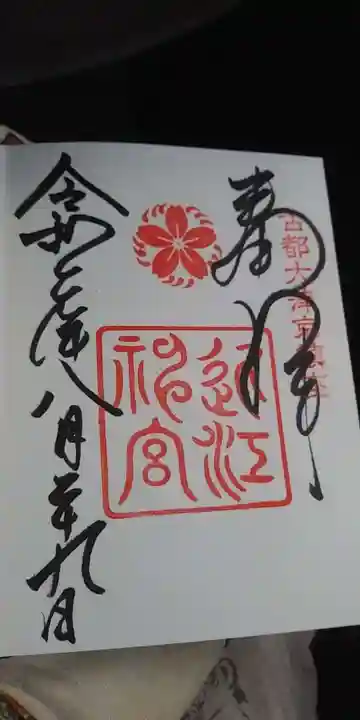 古都大津京鎮座
奉拝
近江
神宮
令和二年八月二十九日